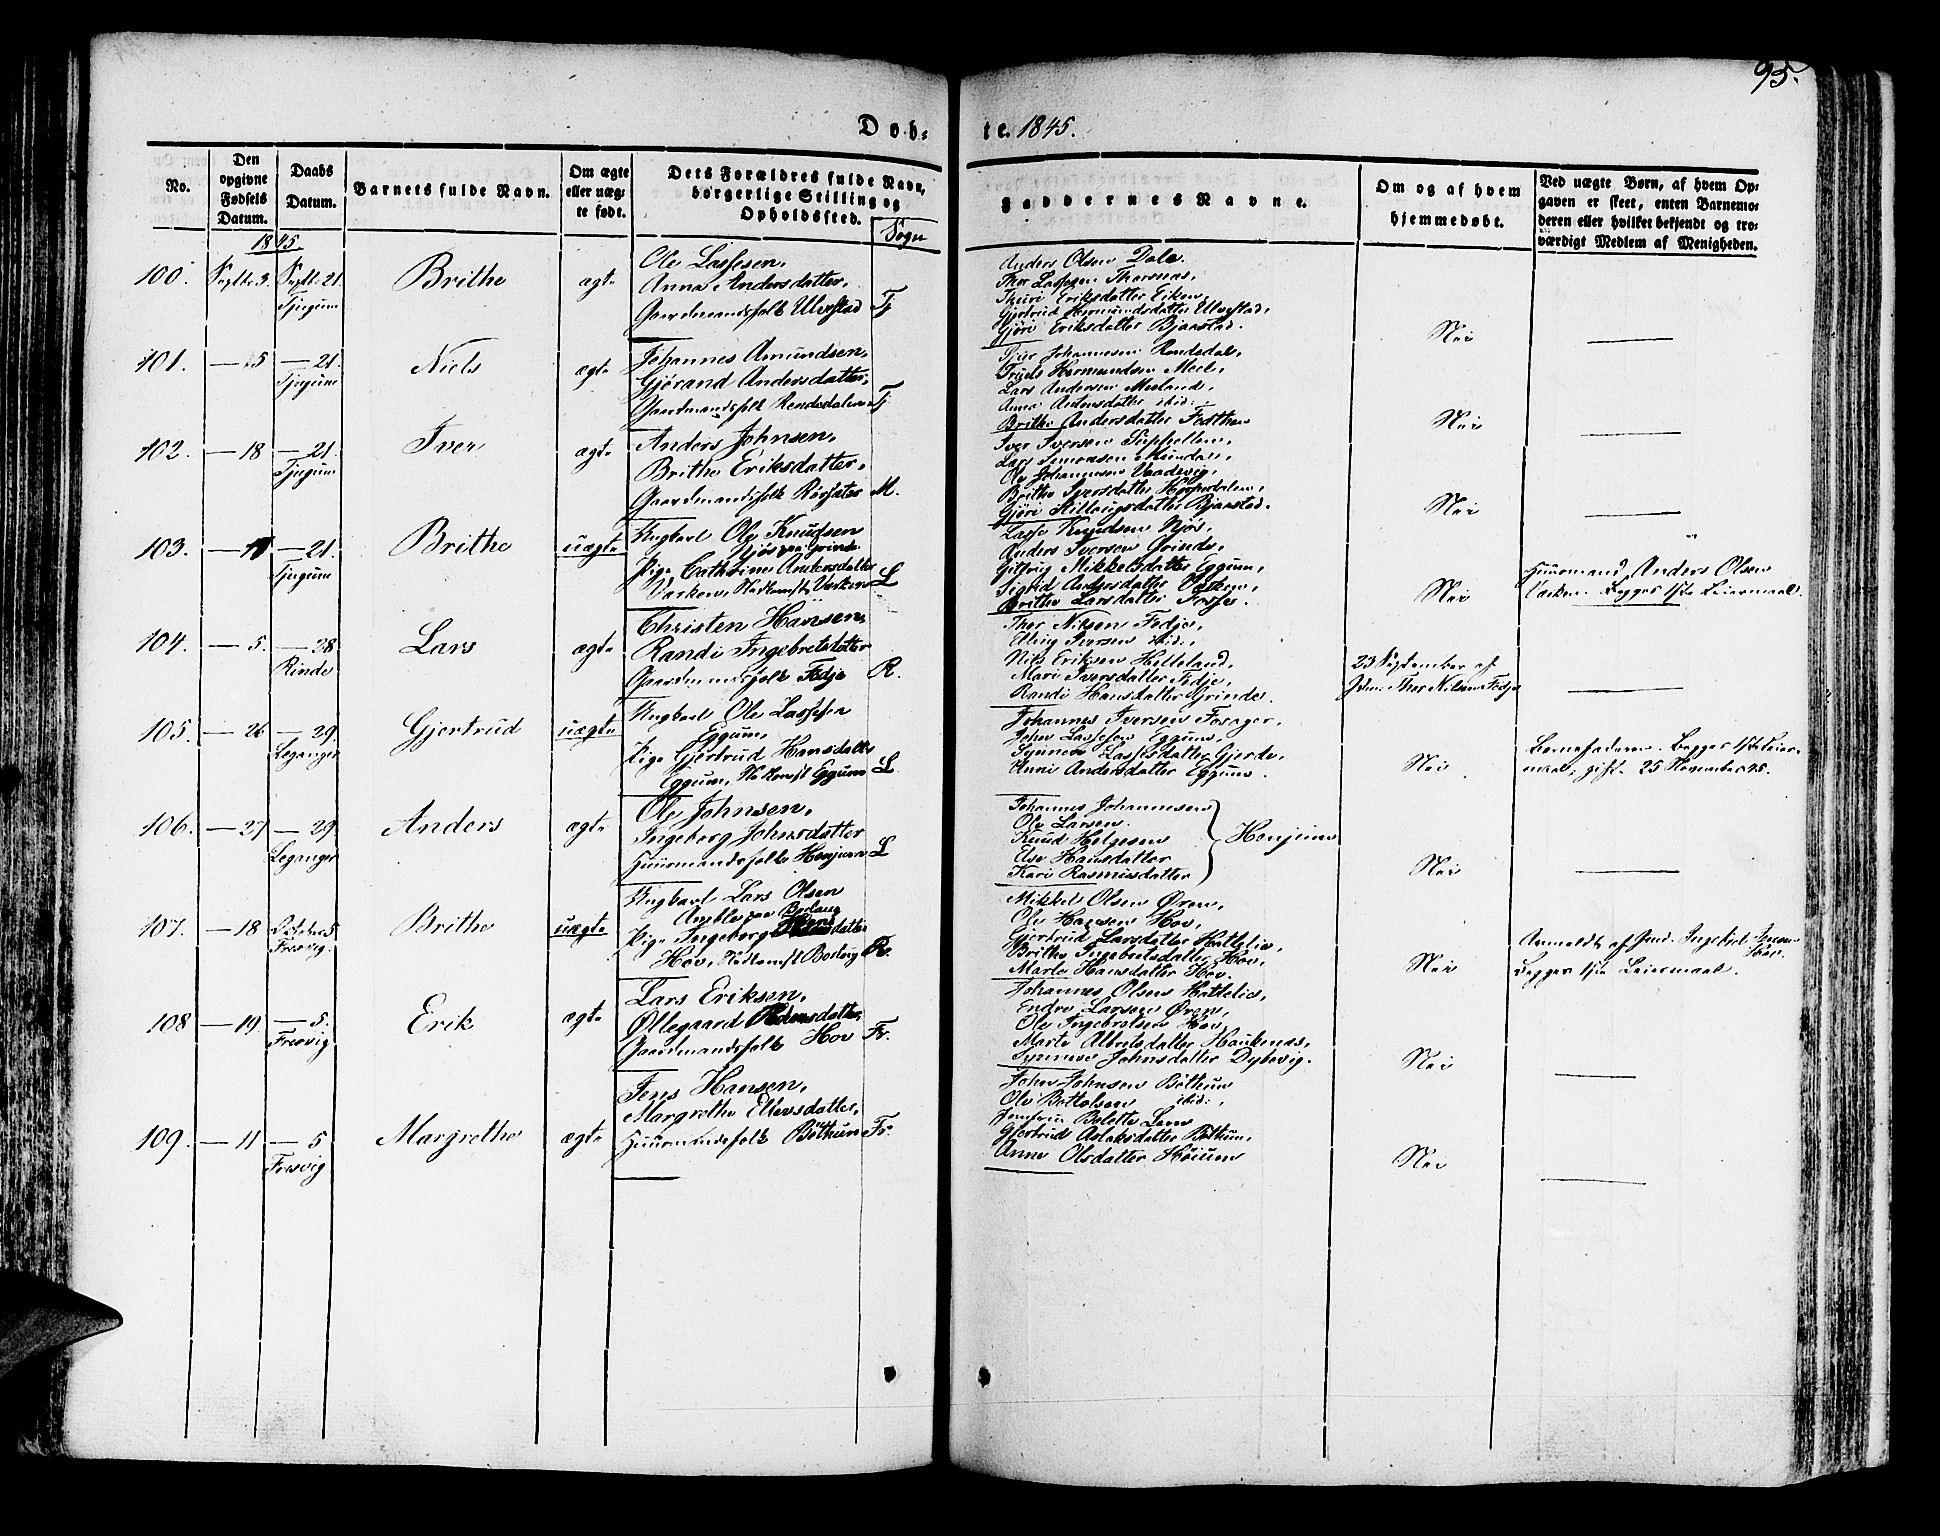 95.
Døb- te. 1845.
No.
Den opgivne Fødsels Datum.
Daabs Datum.
Barnets fulde Navn.
Om ægte eller uægte født.
Dets Forældres fulde Navn, borgerlige Stilling og Opholdssted.
Sogn
Faddernes Navne.
Om og af hvem hjemmedøbt.
Ved uægte Børn, af hvem Opgaven er skeet, enten Barnemoderen eller hvilket bekjendt og troværdigt Medlem af Menigheden.
1845.
100. Septbr 3. Septb. 21. Tjugum Brithe ægte
Ole Lassesen,
Anna Andersdatter,
Gaardmandsfolk Ulvestad Tj
Anders Olsen Dale.
Thor Lassesen Thorsnæs,
Thuri Eriksdatter Eiken,
Gjertrud Hermundsdatter Ulvestad,
Gjøri Eriksdatter Bjaastad.
Nei
101. — 5 — 21. Tjugum Niels ægte
Johannes Amundsen,
Gjørand Andersdatter,
Gaardmandsfolk Rendedalen Tj
Johannesen Rendedal,
Hermundsen Meel,
Lars Andersen Meeland,
Anna Antonsdatter ibid:,
Brithe Andersdatter Fedthun
Nei
102. — 18 — 21. Tjugum Iver ægte
Anders Johnsen,
Brithe Eriksdatter,
Gaardmandsfolk Rørsæter M.
Iver Iversen Suphellen,
Lars Simonsen Mundal,
Ole Johannesen Vaadevig,
Brithe Iversdatter
Gjøri Kittougsdatter Bjaastad.
Nei
103. — — 21. Tjugum Brithe uægte
Ungkarl Ole Knudsen
Njøs paa Grinde
Pige Cathrine Andersdatter
Værken, Nedkomst Værken L
Lasse Knudsen Njøs,
Anders Iversen Grinde,
Mikkelsdatter Eggum,
Sigrid Andersdatter
Brithe Larsdatter Fosse.
Nei
Huusmand, Anders Olsen
Begges 1ste Leiermaal.
104. — 5. — 28. Rinde Lars ægte
Christen Hansen,
Randi Ingebretsdatter
Gaardmandsfolk Fedje R.
Thor Nilsen Fedje,
Elling Iversen ibid:,
Nils Eriksen Helleland,
Mari Iversdatter Fedje,
Randi Hansdatter Grinde.
23 September af
Thor Nilsen Fedje
105. — 26 — 29. Leganger Gjertrud uægte
Ungkarl Ole Lassesen
Eggum,
Pige Gjertrud Hansdatter
Eggum, Nedkomst Eggum L
Johannes Iversen Fosager,
John Lassesen Eggum,
Synneve Lassesdatter Gjerde,
Anni Andersdatter Eggum.
Nei
Barnefaderen. Begges 1ste Leiermaal, gift 25 November 45.
106. — 27 — 29 Leganger Anders ægte
Ole Johnsen,
Ingeborg Johnsdatter
Huusmandsfolk Henjum L
Johannes Johannesen
Ole Larsen.
Knud Helgesen
Else Hansdatter
Kari Rasmusdatter
Henjum
Nei
107. — 18 October 5 Fresvig. Brithe uægte
Ungkarl Lars Olsen
Amble paa
Pige Ingeborg datter
Hov, Nedkomst R.
Mikkel Olsen Øren,
Ole Hansen Hov,
Gjertrud Larsdatter Hattelie,
Brithe Ingebretsdatter Hov,
Marte Hansdatter Hov.
Nei
Anmeldt af
Begges 1ste Leiermaal.
108 — 19. — 5. Fresvig Erik ægte
Lars Eriksen,
Øllegaard datter,
Gaardmandsfolk Hov Fr.
Johannes Olsen Hattelie,
Endre Larsen Øren,
Ole Ingebretsen Hov,
Marte Albretsdatter Haukenæs,
Synneve Johnsdatter Dybevig.
Nei
109. — 11 — 5 Fresvig Margrethe ægte
Jens Hansen,
Margrethe Ellevsdatter,
Huusmandsfolk Bøthun Fr.
John Johnsen Bøthun
Ole Bottolsen ibid:,
Jomfru Bolette Lem
Gjertrud Aslaksdatter Bøthun,
Anna Olsdatter Høium
Nei